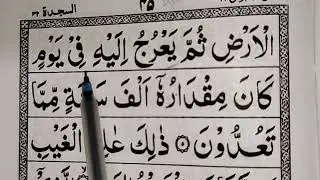 السجدة ٣٢
٣٥
الْاَرْضِ ثُمَّ يَعْرُجُ اِلَيْهِ فِيْ يَوْمٍ
كَانَ مِقْدَارُهٗۤ اَلْفَ سَنَةٍ مِّمَّا
تَعُدُّوْنَ ۞ ذٰلِكَ عٰلِمُ الْغَيْبِ